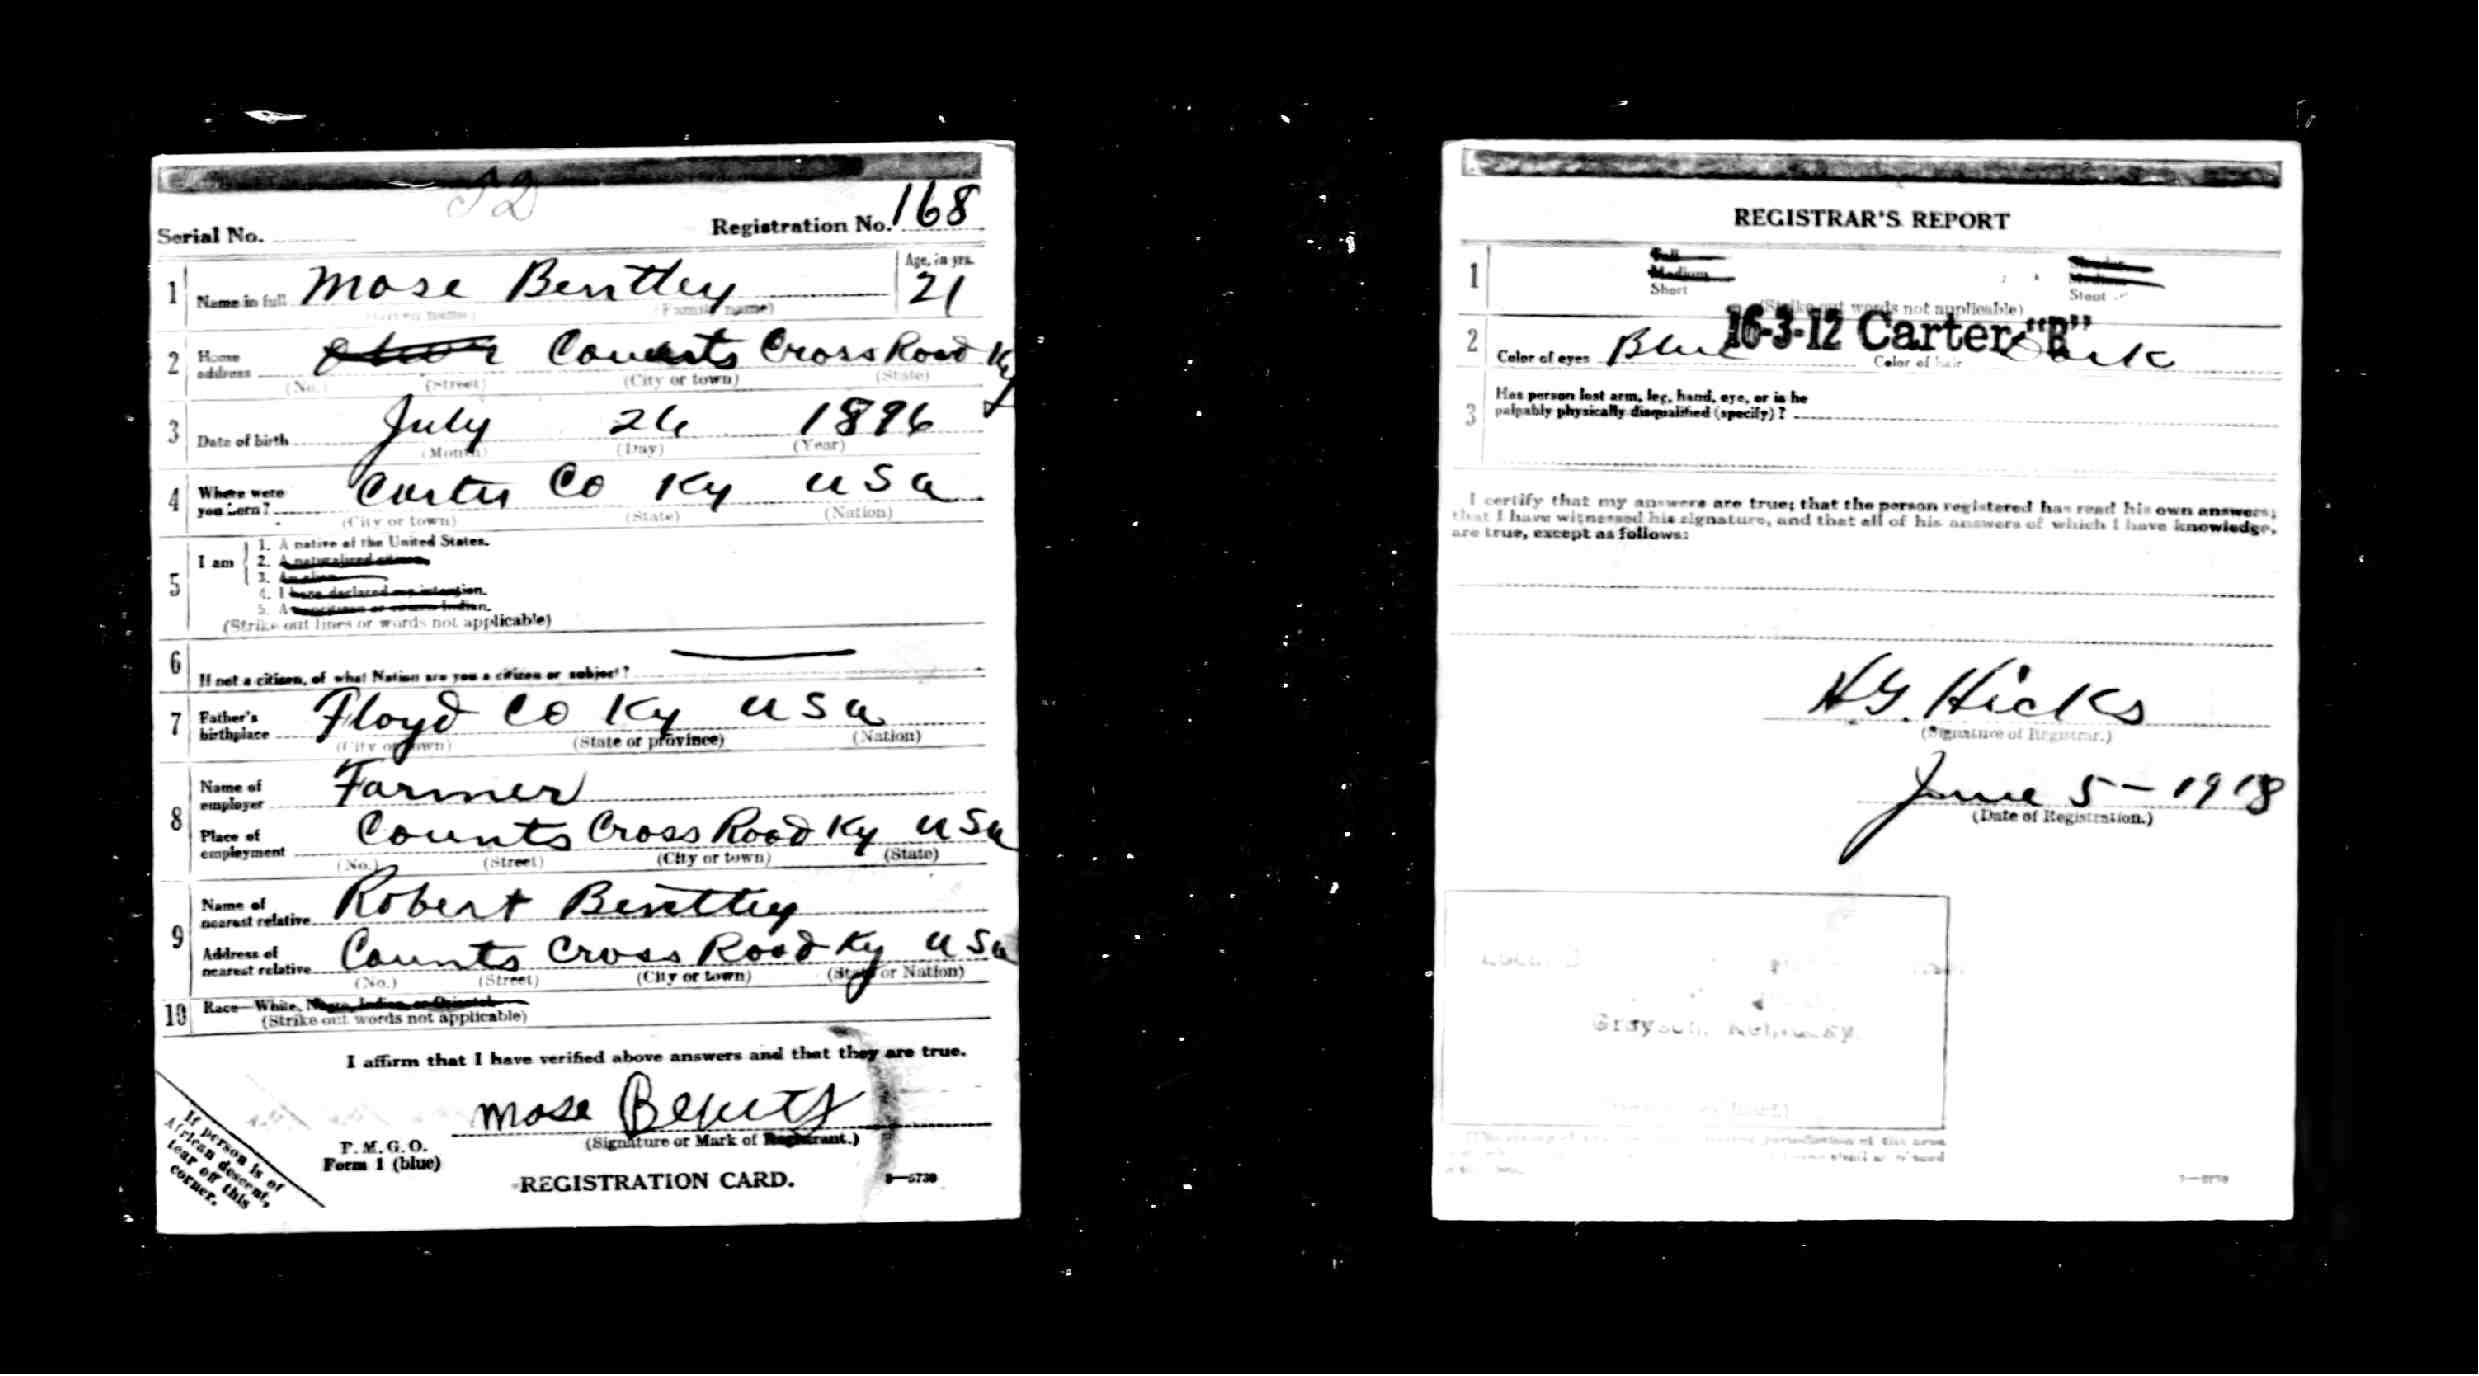 52
Serial No.
Registration No. 168
1 Name in full Mose Bentley Age, in yrs. 21
(Given name) (Family name)
2 Home address Counts Cross Road Ky
(No.) (Street) (City or town) (State)
3 Date of birth July 26 1896
(Month) (Day) (Year)
4 Where were you born? Carter Co Ky USa
(City or town) (State) (Nation)
5 I am
1. A native of the United States.
2. A naturalized citizen.
3. An alien
4. I have declared my intention.
5. A noncitizen or citizen Indian.
(Strike out lines or words not applicable)
6 If not a citizen, of what Nation are you a citizen or subject?
7 Father's birthplace Floyd Co Ky USa
(City or town) (State or province) (Nation)
8 Name of employer Farmer
Place of employment Counts Cross Road Ky USa
(No.) (Street) (City or town) (State)
9 Name of nearest relative Robert Bentley
Address of nearest relative Counts Cross Road Ky USa
(No.) (Street) (City or town) (State or Nation)
10 Race—White, Negro, Indian, or Oriental
(Strike out words not applicable)
I affirm that I have verified above answers and that they are true.
Mose
(Signature or Mark of Registrant.)
If person is of
African descent,
tear off this
corner.
P. M. G. O.
Form 1 (blue)
REGISTRATION CARD.
REGISTRAR'S REPORT
1 Tall Slender
Medium Medium
Short Stout
(Strike out words not applicable)
16-3-12 Carter "B"
2 Color of eyes Blue Color of hair Dark
3 Has person lost arm, leg, hand, eye, or is he
palpably physically disqualified (specify)?
I certify that my answers are true; that the person registered has read his own answers;
that I have witnessed his signature, and that all of his answers of which I have knowledge,
are true, except as follows:
HG. Hicks
(Signature of Registrar.)
June 5 - 1918
(Date of Registration.)
Grayson, Kentucky.